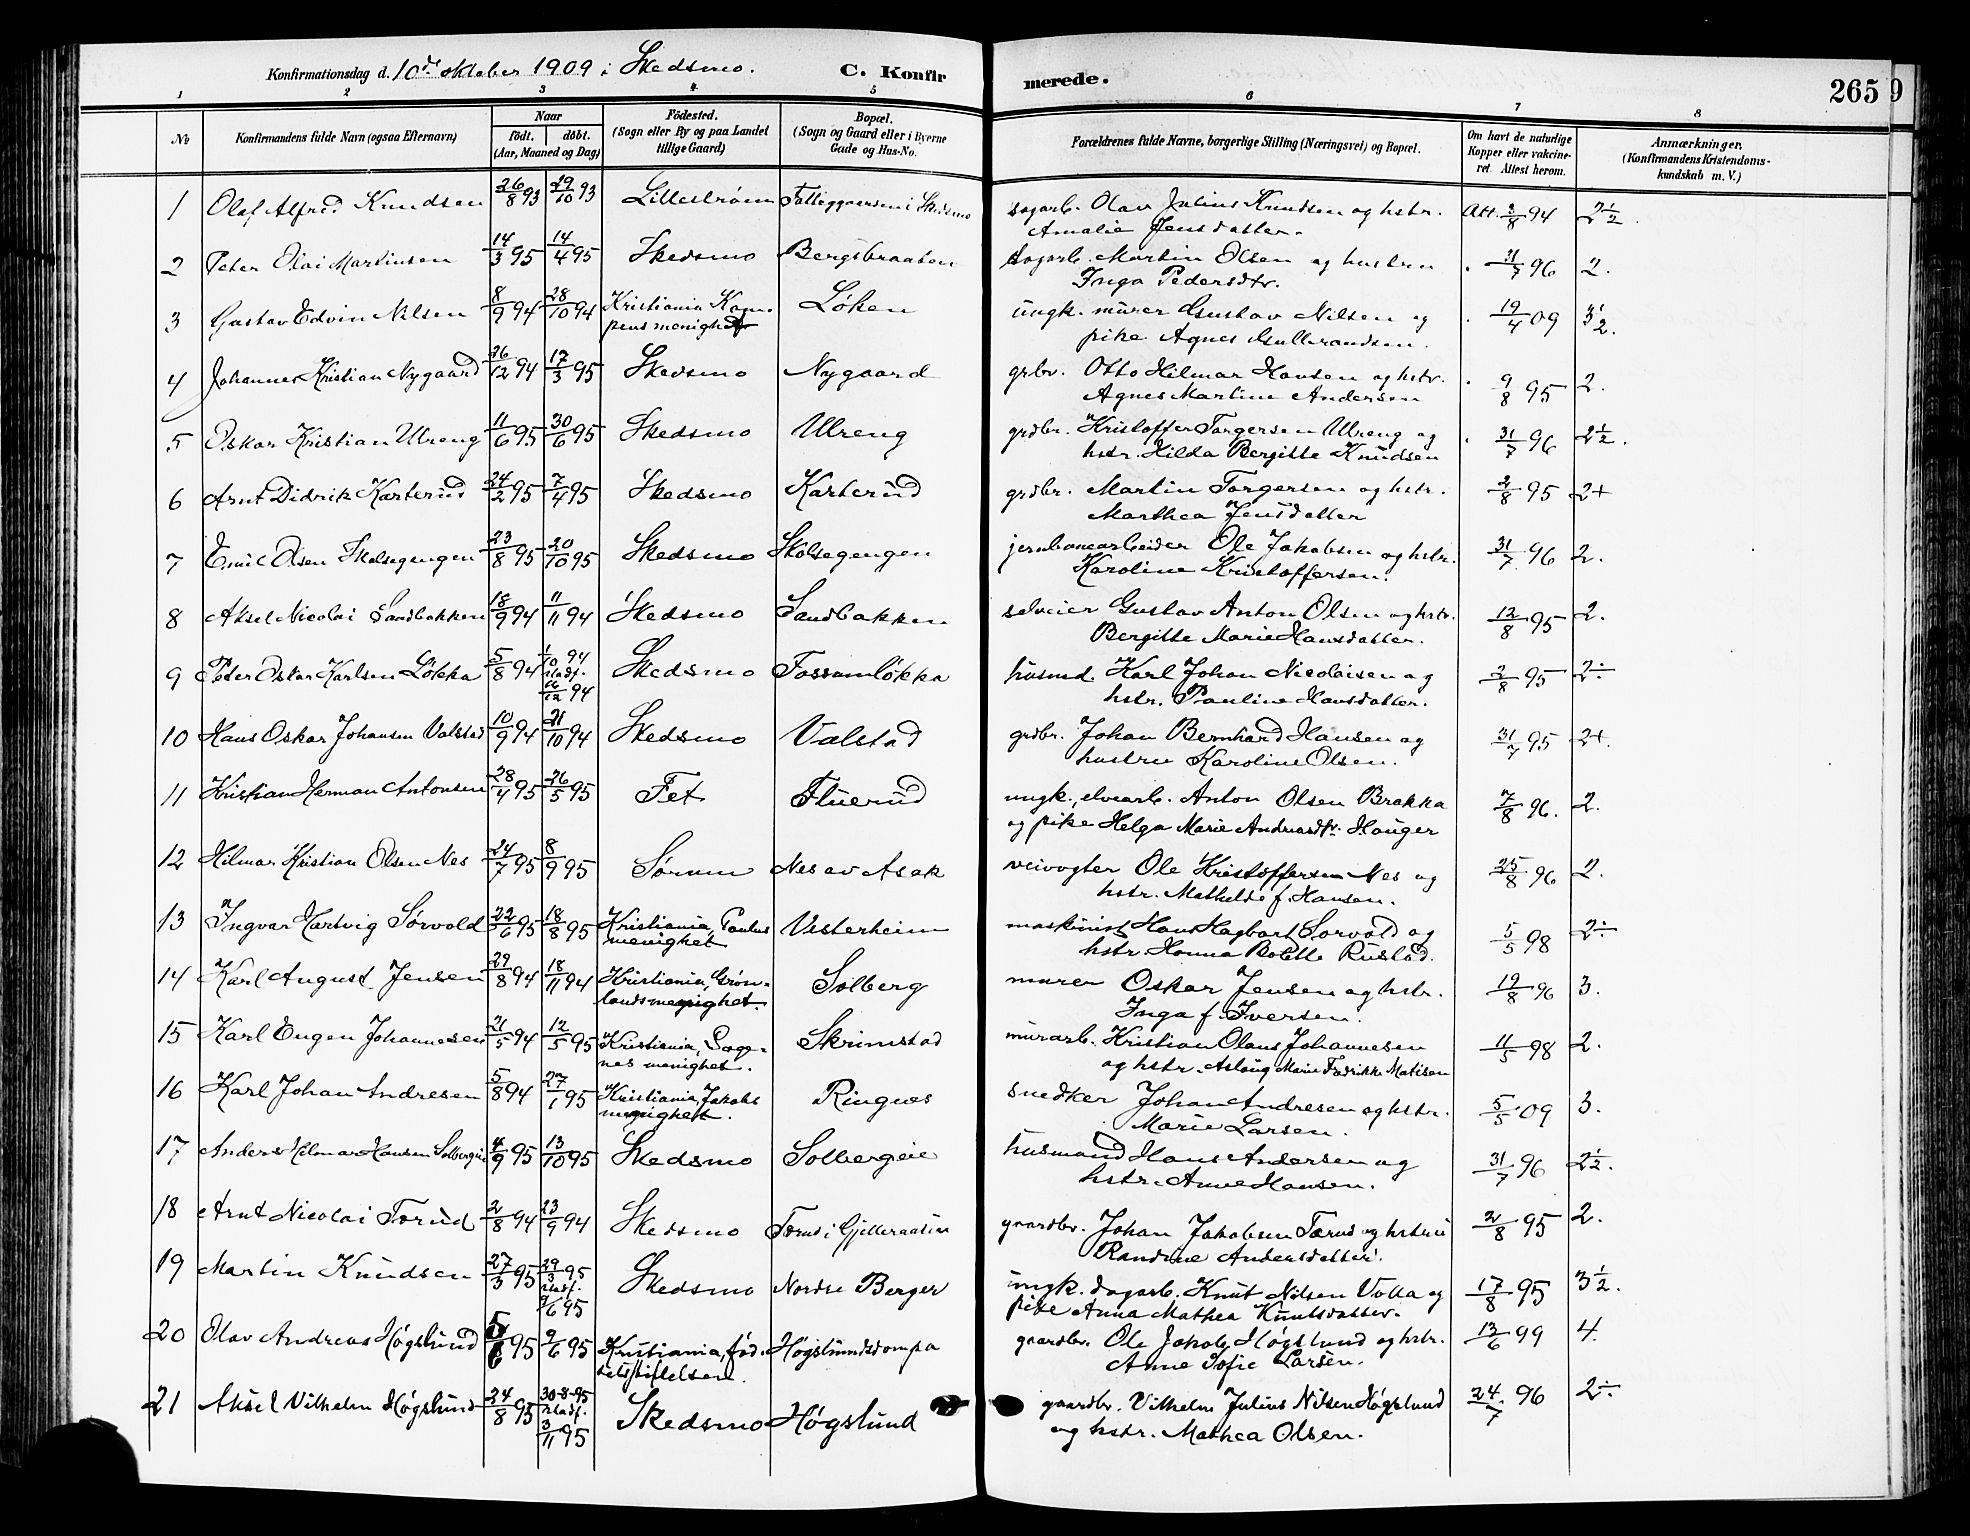 Konfirmationsdag d. 10de oktober 1909 i Skedsmo. C. Konfirmerede. 265 9
1 2 3 4 5 6 7 8
No Konfirmandens fulde Navn (ogsaa Efternavn) Naar født. døbt. (Aar, Maaned og Dag) Fødested. (Sogn eller By og paa Landet tillige Gaard) Bopæl. (Sogn og Gaard eller i Byerne Gade og Hus-No. Forældrenes fulde Navne, borgerlige Stilling (Næringsvei) og Bopæl. Om havt de naturlige Kopper eller vakcineret. Attest herom. Anmærkninger. (Konfirmandens Kristendomskundskab m. V.)
1 Olaf Alfred Knudsen 26/8 93 29/10 93 Lillestrøm Fattiggaarden i Skedsmo sagarb. Olav Julius Knudsen og hstr. Att. 2/8 94 2 1/2.
Amalie Jensdatter.
2 Peter Olai Martinsen 14/3 95 14/4 95 Skedsmo Bergsbraaten sagarb. Martin Olsen og hustru 31/7 96 2.
Inga Pedersdtr.
3 Gustav Edvin Nilsen 8/9 94 28/10 94 Kristiania Kampens menighet Løken ungk. murer Gustav Nilsen og 19/4 09 3 1/2.
pike Agnes Gulbrandsen.
4 Johannes Kristian Nygaard 26/12 94 17/3 95 Skedsmo Nygaard grbr. Otto Hilmar Hansen og hstr. 9/8 95 2.
Agnes Martine Andersen
5 Oskar Kristian Ulreng 11/6 95 30/6 95 Skedsmo Ulreng grdbr. Kristoffer Torgersen Ulreng og 31/7 96 2 1/2.
hstr. Hilda Bergitte Knudsen
6 Arnt Didrik Karterud 24/2 95 7/4 95 Skedsmo Karterud grdbr. Martin Torgersen og hstr. 2/8 95 2+
Marthea Jensdatter
7 Emil Olsen Skolsegengen 23/8 95 20/10 95 Skedsmo Skolsegengen jernbanearbeider Ole Jakobsen og hstr. 31/7 96 2.
Karoline Kristoffersen.
8 Aksel Nicolai Sandbakken 18/9 94 11/11 94 Skedsmo Sandbakken selveier Gustav Anton Olsen og hstr. 12/8 95 2.
Bergitte Marie Hansdatter.
9 Peter Oskar Karlsen Løkka 5/8 94 1/10 94 stadf. 16/12 94 Skedsmo Fossumløkka husmd. Karl Johan Nicolaisen og 2/8 95 2÷
hstr. Pauline Hansdatter.
10 Hans Oskar Johansen Valstad 10/9 94 21/10 94 Skedsmo Valstad grdbr. Johan Bernhard Hansen og 31/7 95 2+.
hustru Karoline Olsen.
11 Kristian Herman Antonsen 28/4 95 26/5 95 Fet Fluerud ungk., elvearb. Anton Olsen Brakka 7/8 96. 2.
og pike Helga Marie Andreasdtr. Hauger
12 Hilmar Kristian Olsen Nes 24/7 95 8/9 95 Sørum Nes av Asak veivogter Ole Kristoffersen Nes og 25/8 96 2.
hstr. Mathilde f. Hansen.
13 Ingvar Hartvig Sørvold 22/6 95 18/8 95 Kristiania, Paulus menighet Vesterheim maskinist Hans Hagbart Sørvold og 5/5 98 2÷
hstr. Hanna Bolette Rustad.
14 Karl August Jensen 29/8 94 18/11 94 Kristiania, Grønlands menighet. Solberg murer Oskar Jensen og hstr. 19/8 96 3.
Inga f. Iversen.
15 Karl Eugen Johannesen 21/5 94 12/5 95 Kristiania, Sagenes menighet. Skrimstad murarb. Kristian Olaus Johannesen 11/5 98 2.
og hstr. Aslaug Marie Fredrikke Matisen
16 Karl Johan Andresen 5/8 94 27/1 95 Kristiania, Jakobs menighet. Ringnes snedker Johan Andresen og hstr. 5/5 09 3.
Marie Larsen.
17 Anders Hilmar Hansen Solbergeie 4/9 95 13/10 95 Skedsmo Solbergeie husmand Hans Andersen og 31/7 96 2 1/2.
hstr. Anne Hansen.
18 Arnt Nicolai Tærud 2/8 94 23/9 94 Skedsmo Tærud i Gjelleraasen gaardbr. Johan Jakobsen Tærud og hstru 2/8 95 2.
Randine Andersdatter.
19 Martin Knudsen 27/3 95 29/3 95 stadf. 9/6 95 Skedsmo Nordre Berger ungk. dagarb. Knut Nilsen Volla og 17/8 95 3 1/2.
pike Anna Mathea Knutsdatter.
20 Olav Andreas Høgslund 5/6 95 9/6 95 Kristiania, fødselsstiftelsen. Høgslundsdompa gaardbr. Ole Jakob Høgslund og hstr. 13/6 99 4.
Anne Sofie Larsen.
21 Aksel Vilhelm Høgslund 24/8 95 30-8-95 stadf. 3/11 95 Skedsmo Høgslund gaardbr. Vilhelm Julius Nilsen Høgslund 24/7 96 2÷
og hstr. Mathea Olsen.